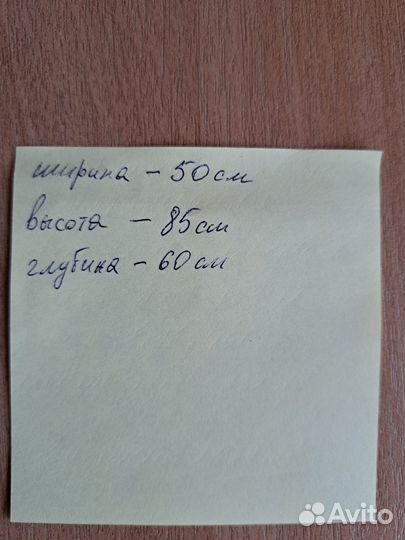 ширина – 50см
высота – 85см
глубина – 60см
Avito